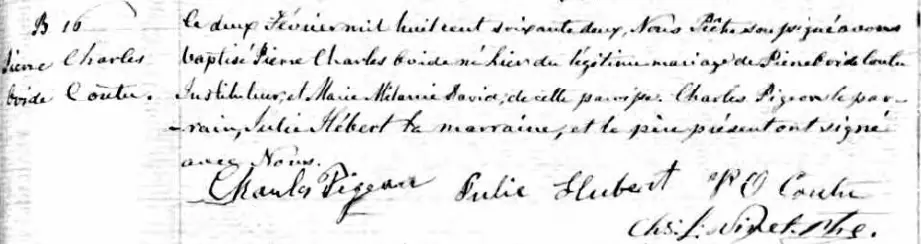 B 16
Pierre Charles
Ovide Coutu.
Le deux Février mil huit cent soixante deux, Nous Prêtre soussigné avons
baptisé Pierre Charles Ovide né hier du légitime mariage de Pierre Ovide Coutu
Instituteur, et Marie Mélanie David, de cette paroisse. Charles Pigeon le par-
-rain, Julie Hébert la marraine, et le père présent ont signé
avec Nous.
Charles Pigeon Julie Hubert P O Coutu
Chs. L. Ptre.